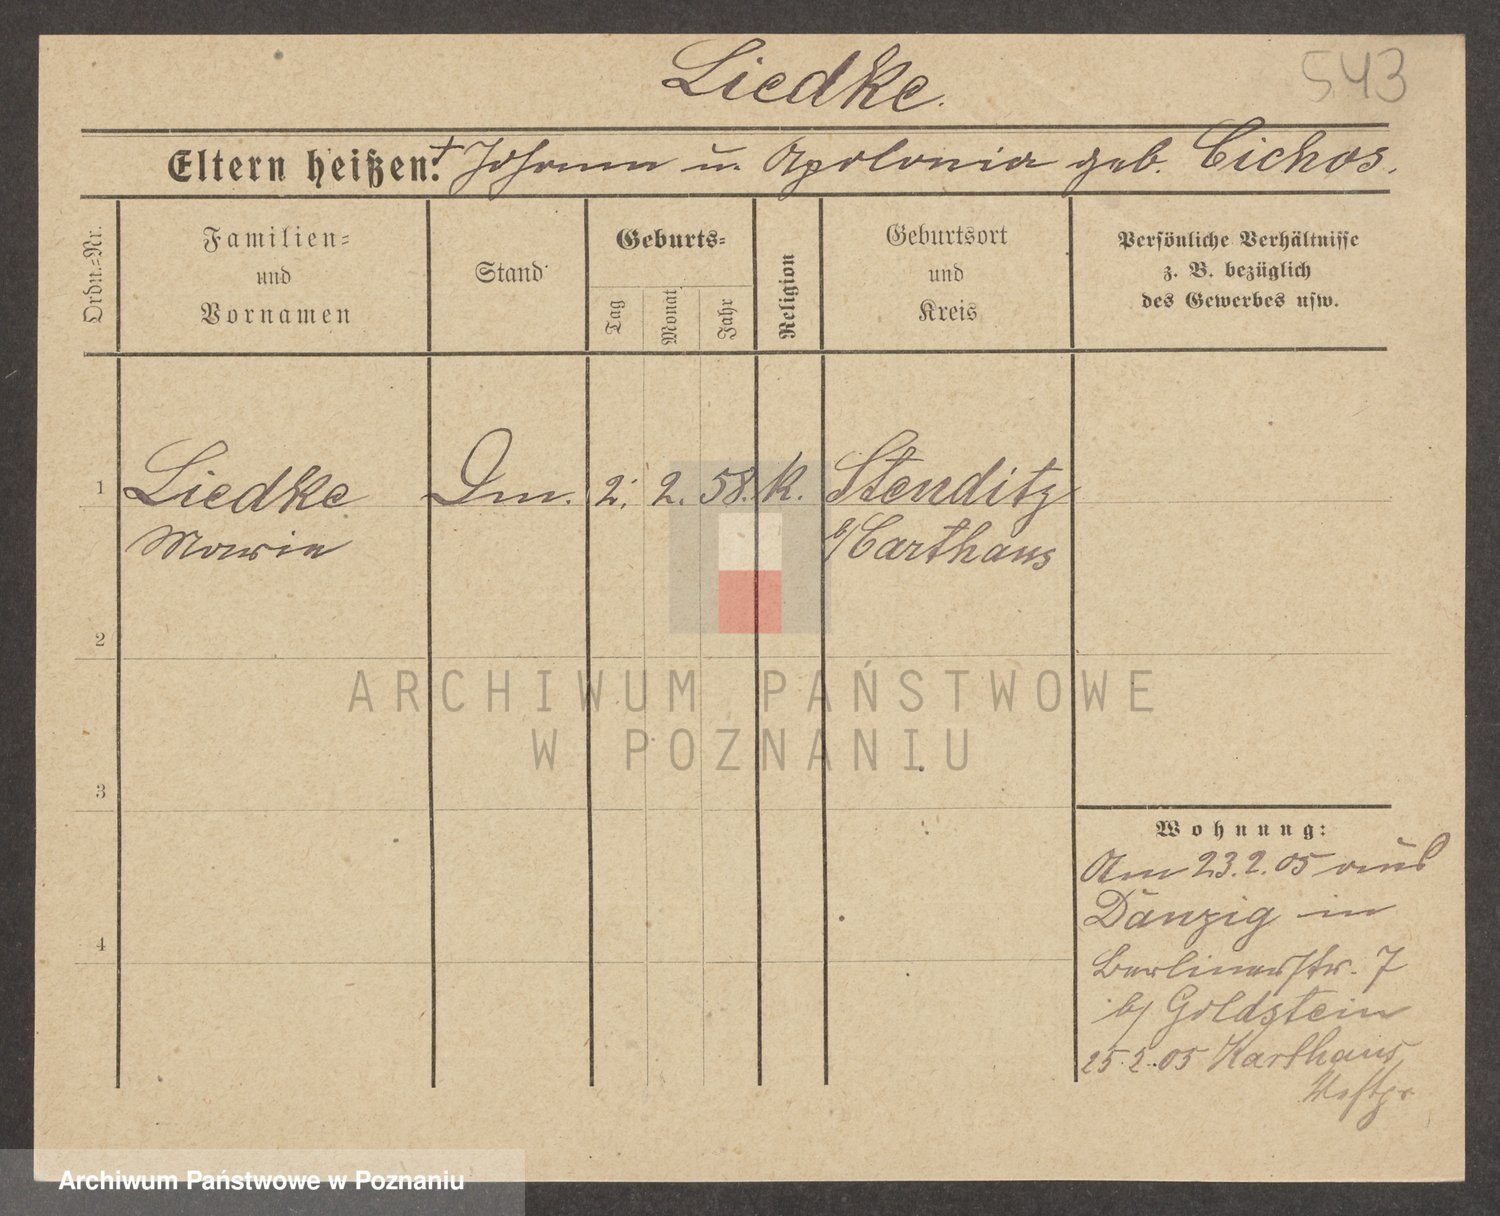 543
Liedke.
Eltern heißen: † Johann u. Apolonia geb. Cichos.
Ordn.-Nr.
Familien-
und
Vornamen
Stand
Geburts-
Tag
Monat
Jahr
Religion
Geburtsort
und
Kreis
Persönliche Verhältnisse
z. B. bezüglich
des Gewerbes usw.
1 Liedke 2. 2. 58. k. Stenditz
Marie b/Carthaus
2
3
4
Wohnung:
Am 23.2.05 aus
Danzig in
Berlinerstr. 7
b/ Goldstein
25.2.05 Karthaus
Westpr
ARCHIWUM PAŃSTWOWE
W POZNANIU
Archiwum Państwowe w Poznaniu